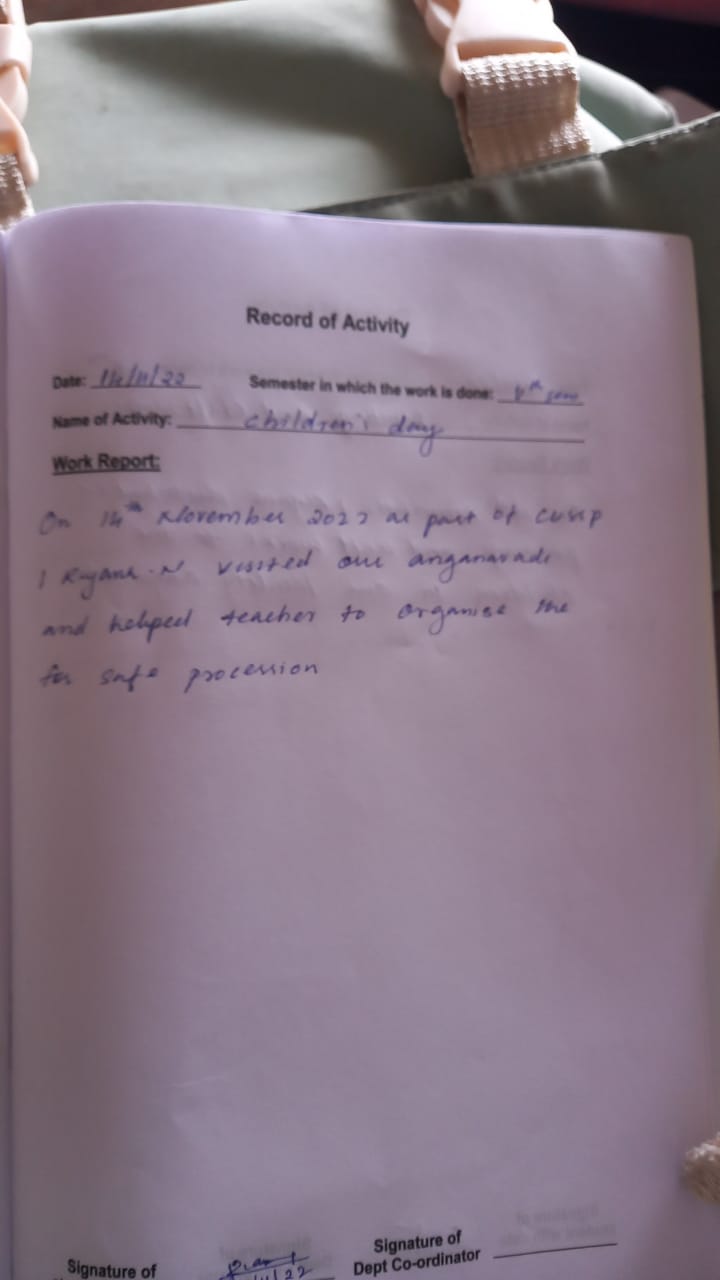 Record of Activity
Date: 14/11/22 Semester in which the work is done: sem
Name of Activity: children's day
Work Report:
On 14th November 2022 as part of cussp
I N visited our anganavadi
and helped teacher to organise the
for safe procession
Signature of
Signature of
Dept Co-ordinator